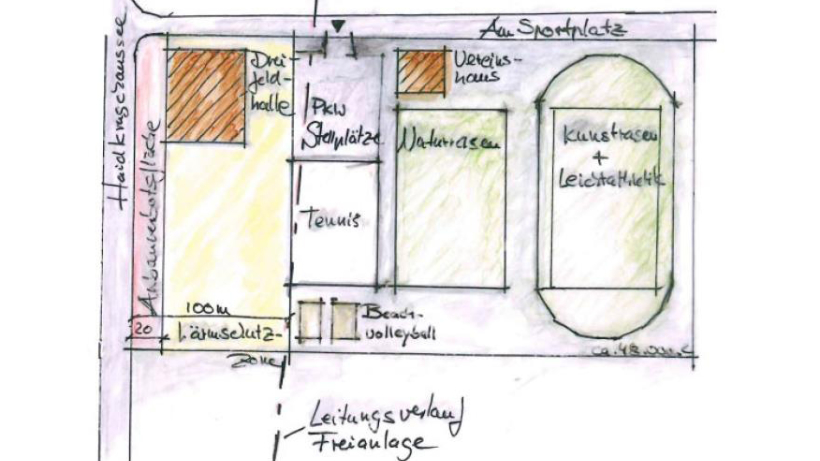 Am Sportplatz
Haidkrugchaussee
Anbauverbotsfläche
Drei-
feld-
halle
PKW
Stellplätze
Vereins-
haus
Naturrasen
Kunstrasen
+
Leichtathletik
Tennis
100m
20
Lärmschutz-
zone
Beach-
volleyball
Leitungsverlauf
Freianlage